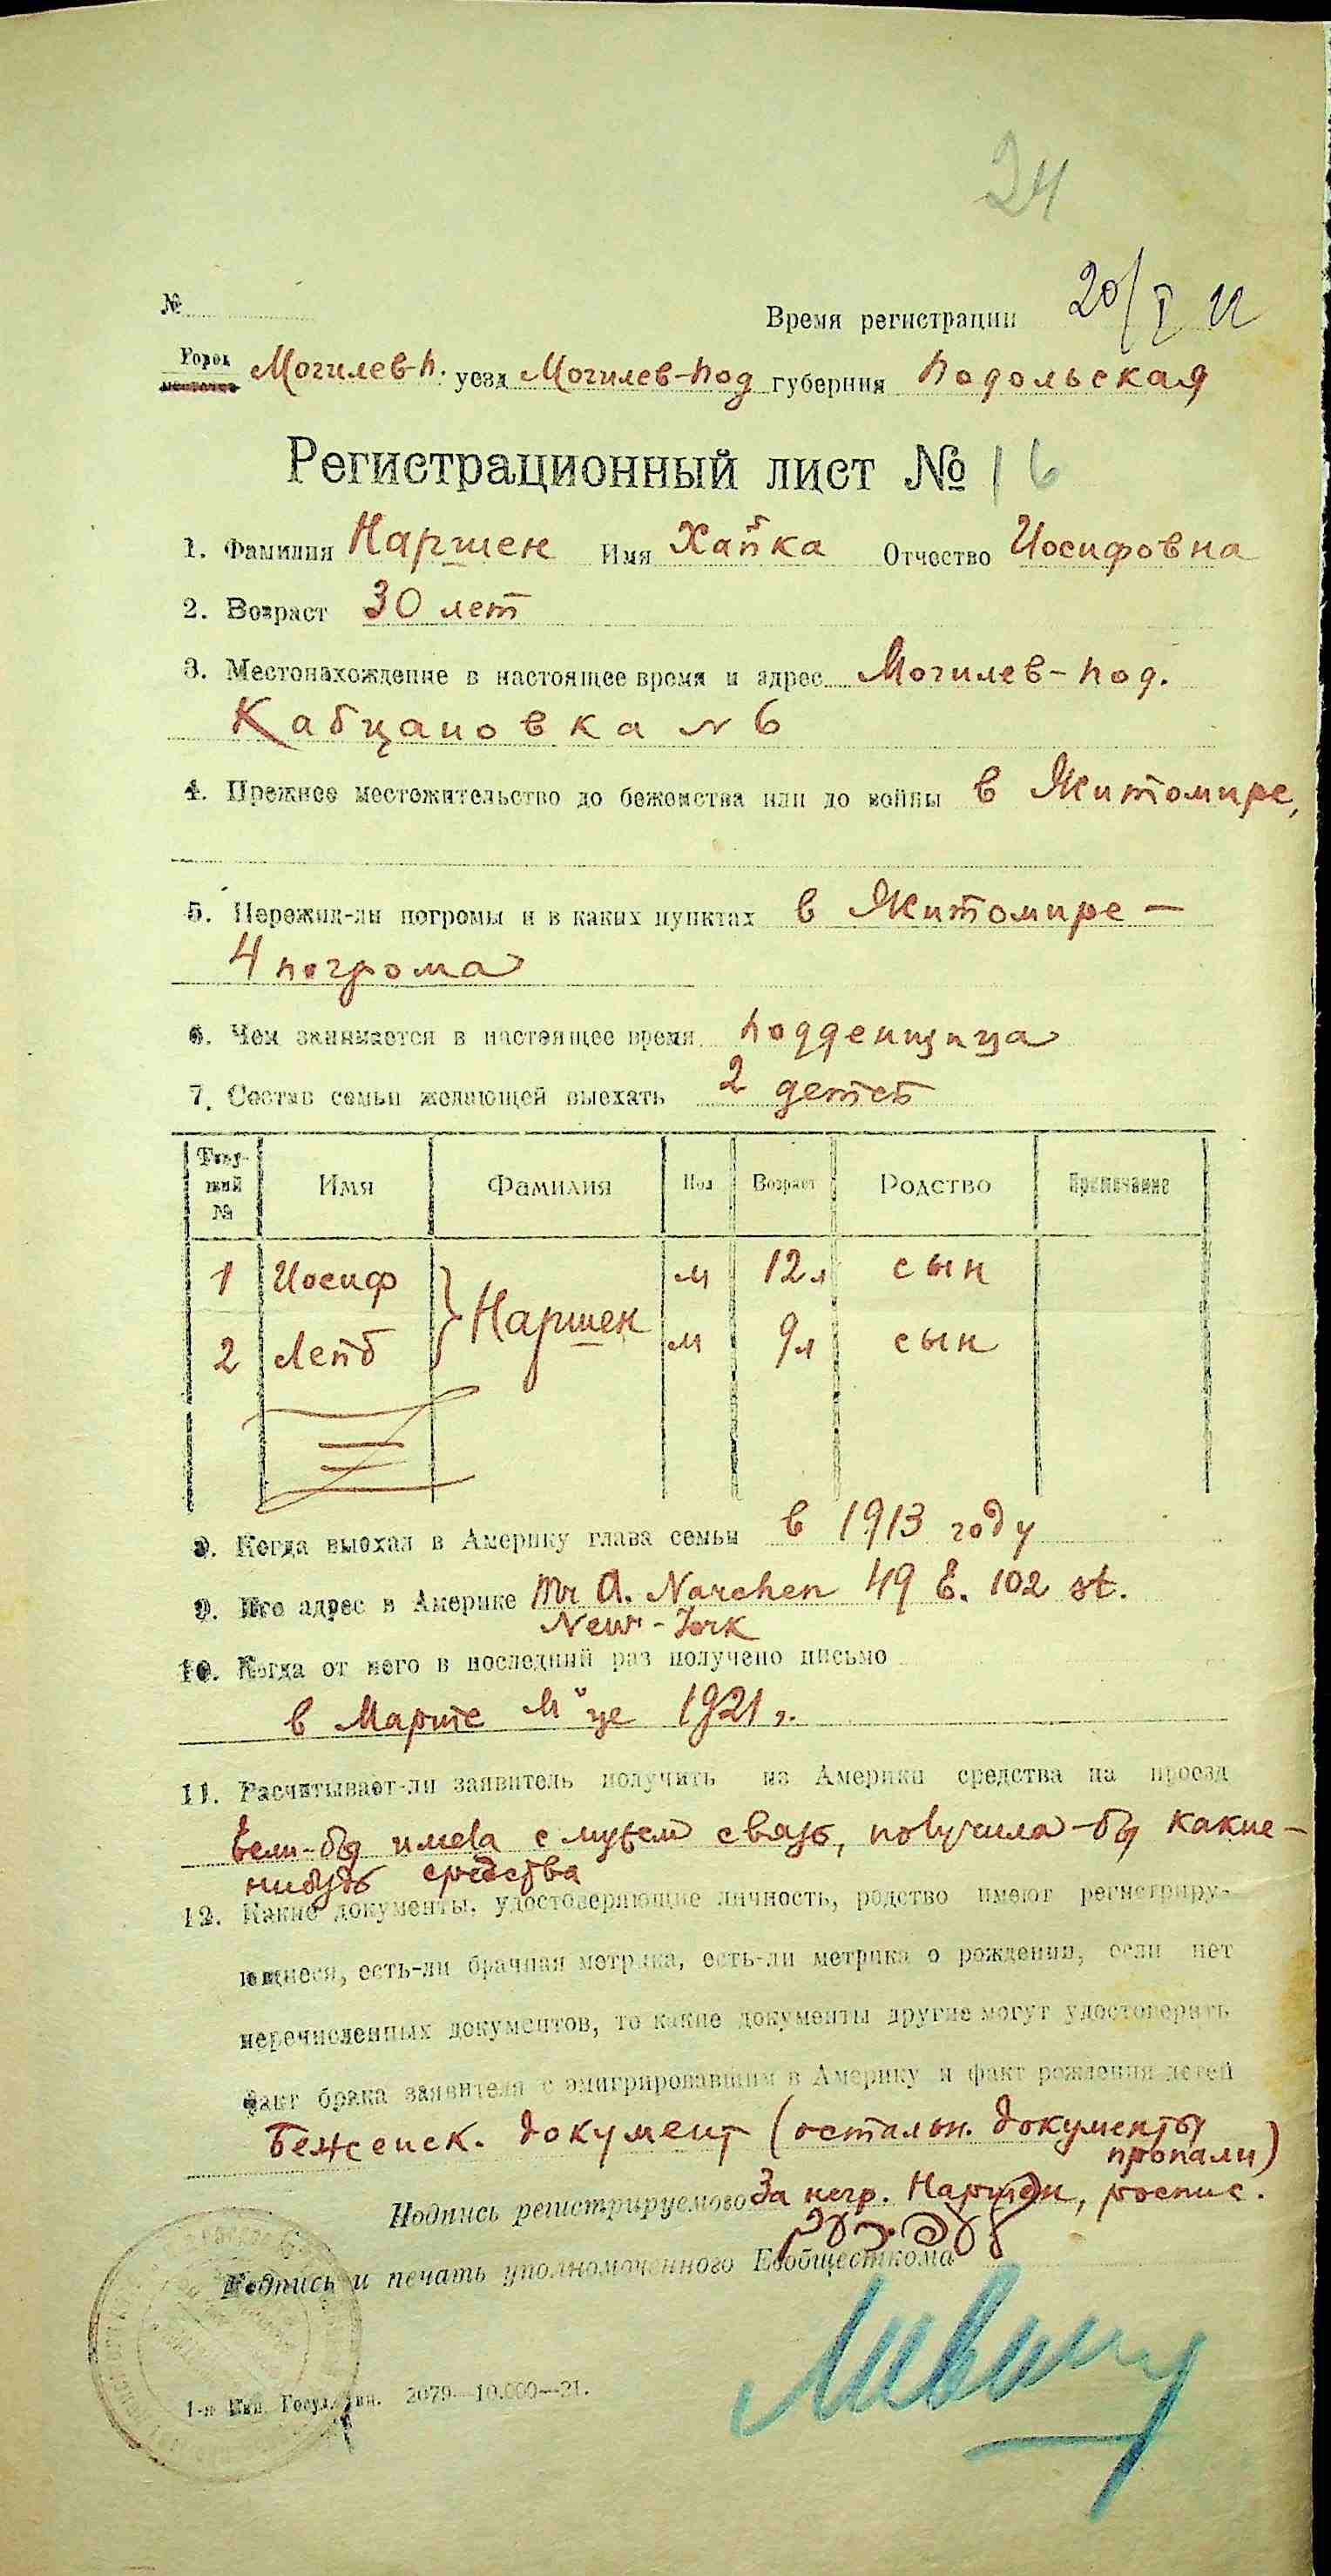 24
№
Время регистрации 20/I 22
Город Могилев-п. уезд Могилев-под губерния Подольская
местечко
Регистрационный лист № 16
1. Фамилия Наршен Имя Хайка Отчество Иосифовна
2. Возраст 30 лет
3. Местонахождение в настоящее время и адрес Могилев-под.
Кабцановка № 6
4. Прежнее местожительство до беженства или до войны в Житомире,
5. Пережил-ли погромы и в каких пунктах в Житомире —
4 погрома
6. Чем занимается в настоящее время поденщица
7. Состав семьи желающей выехать 2 детей
Теку-
щий
№
Имя Фамилия Пол Возраст Родство Примечание
1 Иосиф Наршен м 12л сын
2 Лейб м 9л сын
8. Когда выехал в Америку глава семьи в 1913 году
9. Его адрес в Америке Mr A. Narchen 49 E. 102 st.
New-York
10. Когда от него в последний раз получено письмо
в Марте м-це 1921 г.
11. Расчитывает-ли заявитель получить из Америки средства на проезд
Если-бы имела с мужем связь, получила-бы какие-
нибудь средства
12. Какие документы, удостоверяющие личность, родство имеют регистриру-
ющиеся, есть-ли брачная метрика, есть-ли метрика о рождении, если нет
перечисленных документов, то какие документы другие могут удостоверить
факт брака заявителя с эмигрировавшим в Америку и факт рождения детей
Беженск. документ (остальн. документы
пропали)
Подпись регистрируемого За негр. Наршен, роспис.
Подпись и печать уполномоченного Евобщесткома
2079—10.000—21.